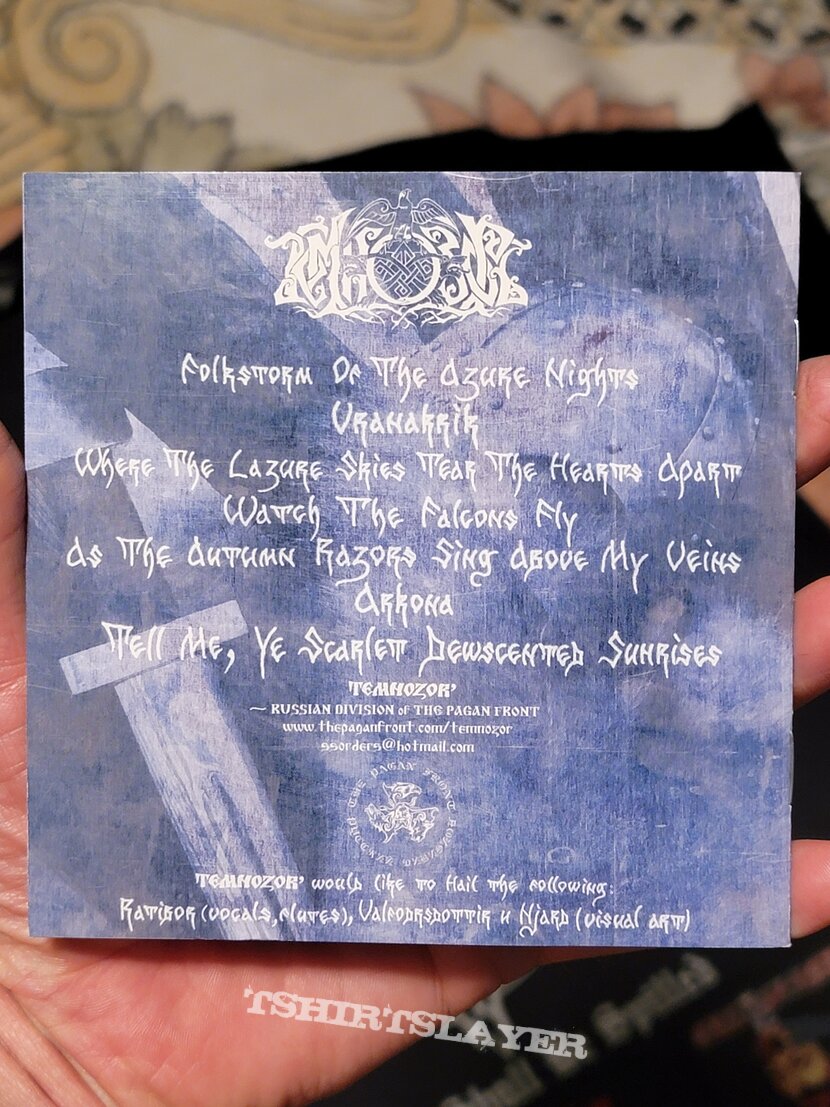 TEMNOZOR
Folkstorm Of The Azure Nights
Vranakrik
Where The Lazure Skies Tear The Hearts Apart
Watch The Falcons Fly
As The Autumn Razors Sing Above My Veins
Arkona
Tell Me, Ye Scarlet Dewscented Sunrises
TEMNOZOR'
~ RUSSIAN DIVISION of THE PAGAN FRONT
www.thepaganfront.com/temnozor
ssorders@hotmail.com
THE PAGAN FRONT
TEMNOZOR' would like to Hail the following:
Ratibor (vocals, flutes), Valfodrsdottir и Njard (visual art)
TSHIRTSLAYER